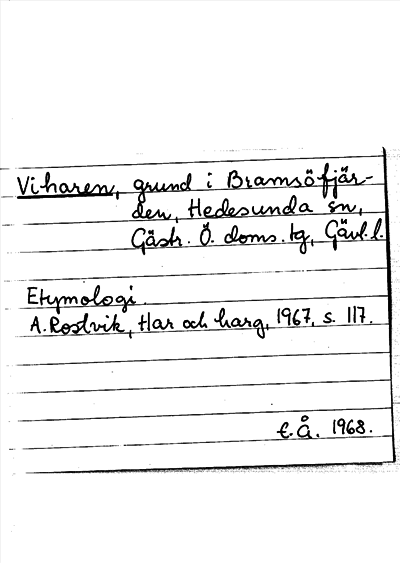 Viharen, grund i Bramsöfjär-
den, Hedesunda sn,
Gästr. Ö. doms. tg, Gävl. l.
Etymologi.
A. Rostvik, Har och harg, 1967, s. 117.
E. Å. 1968.